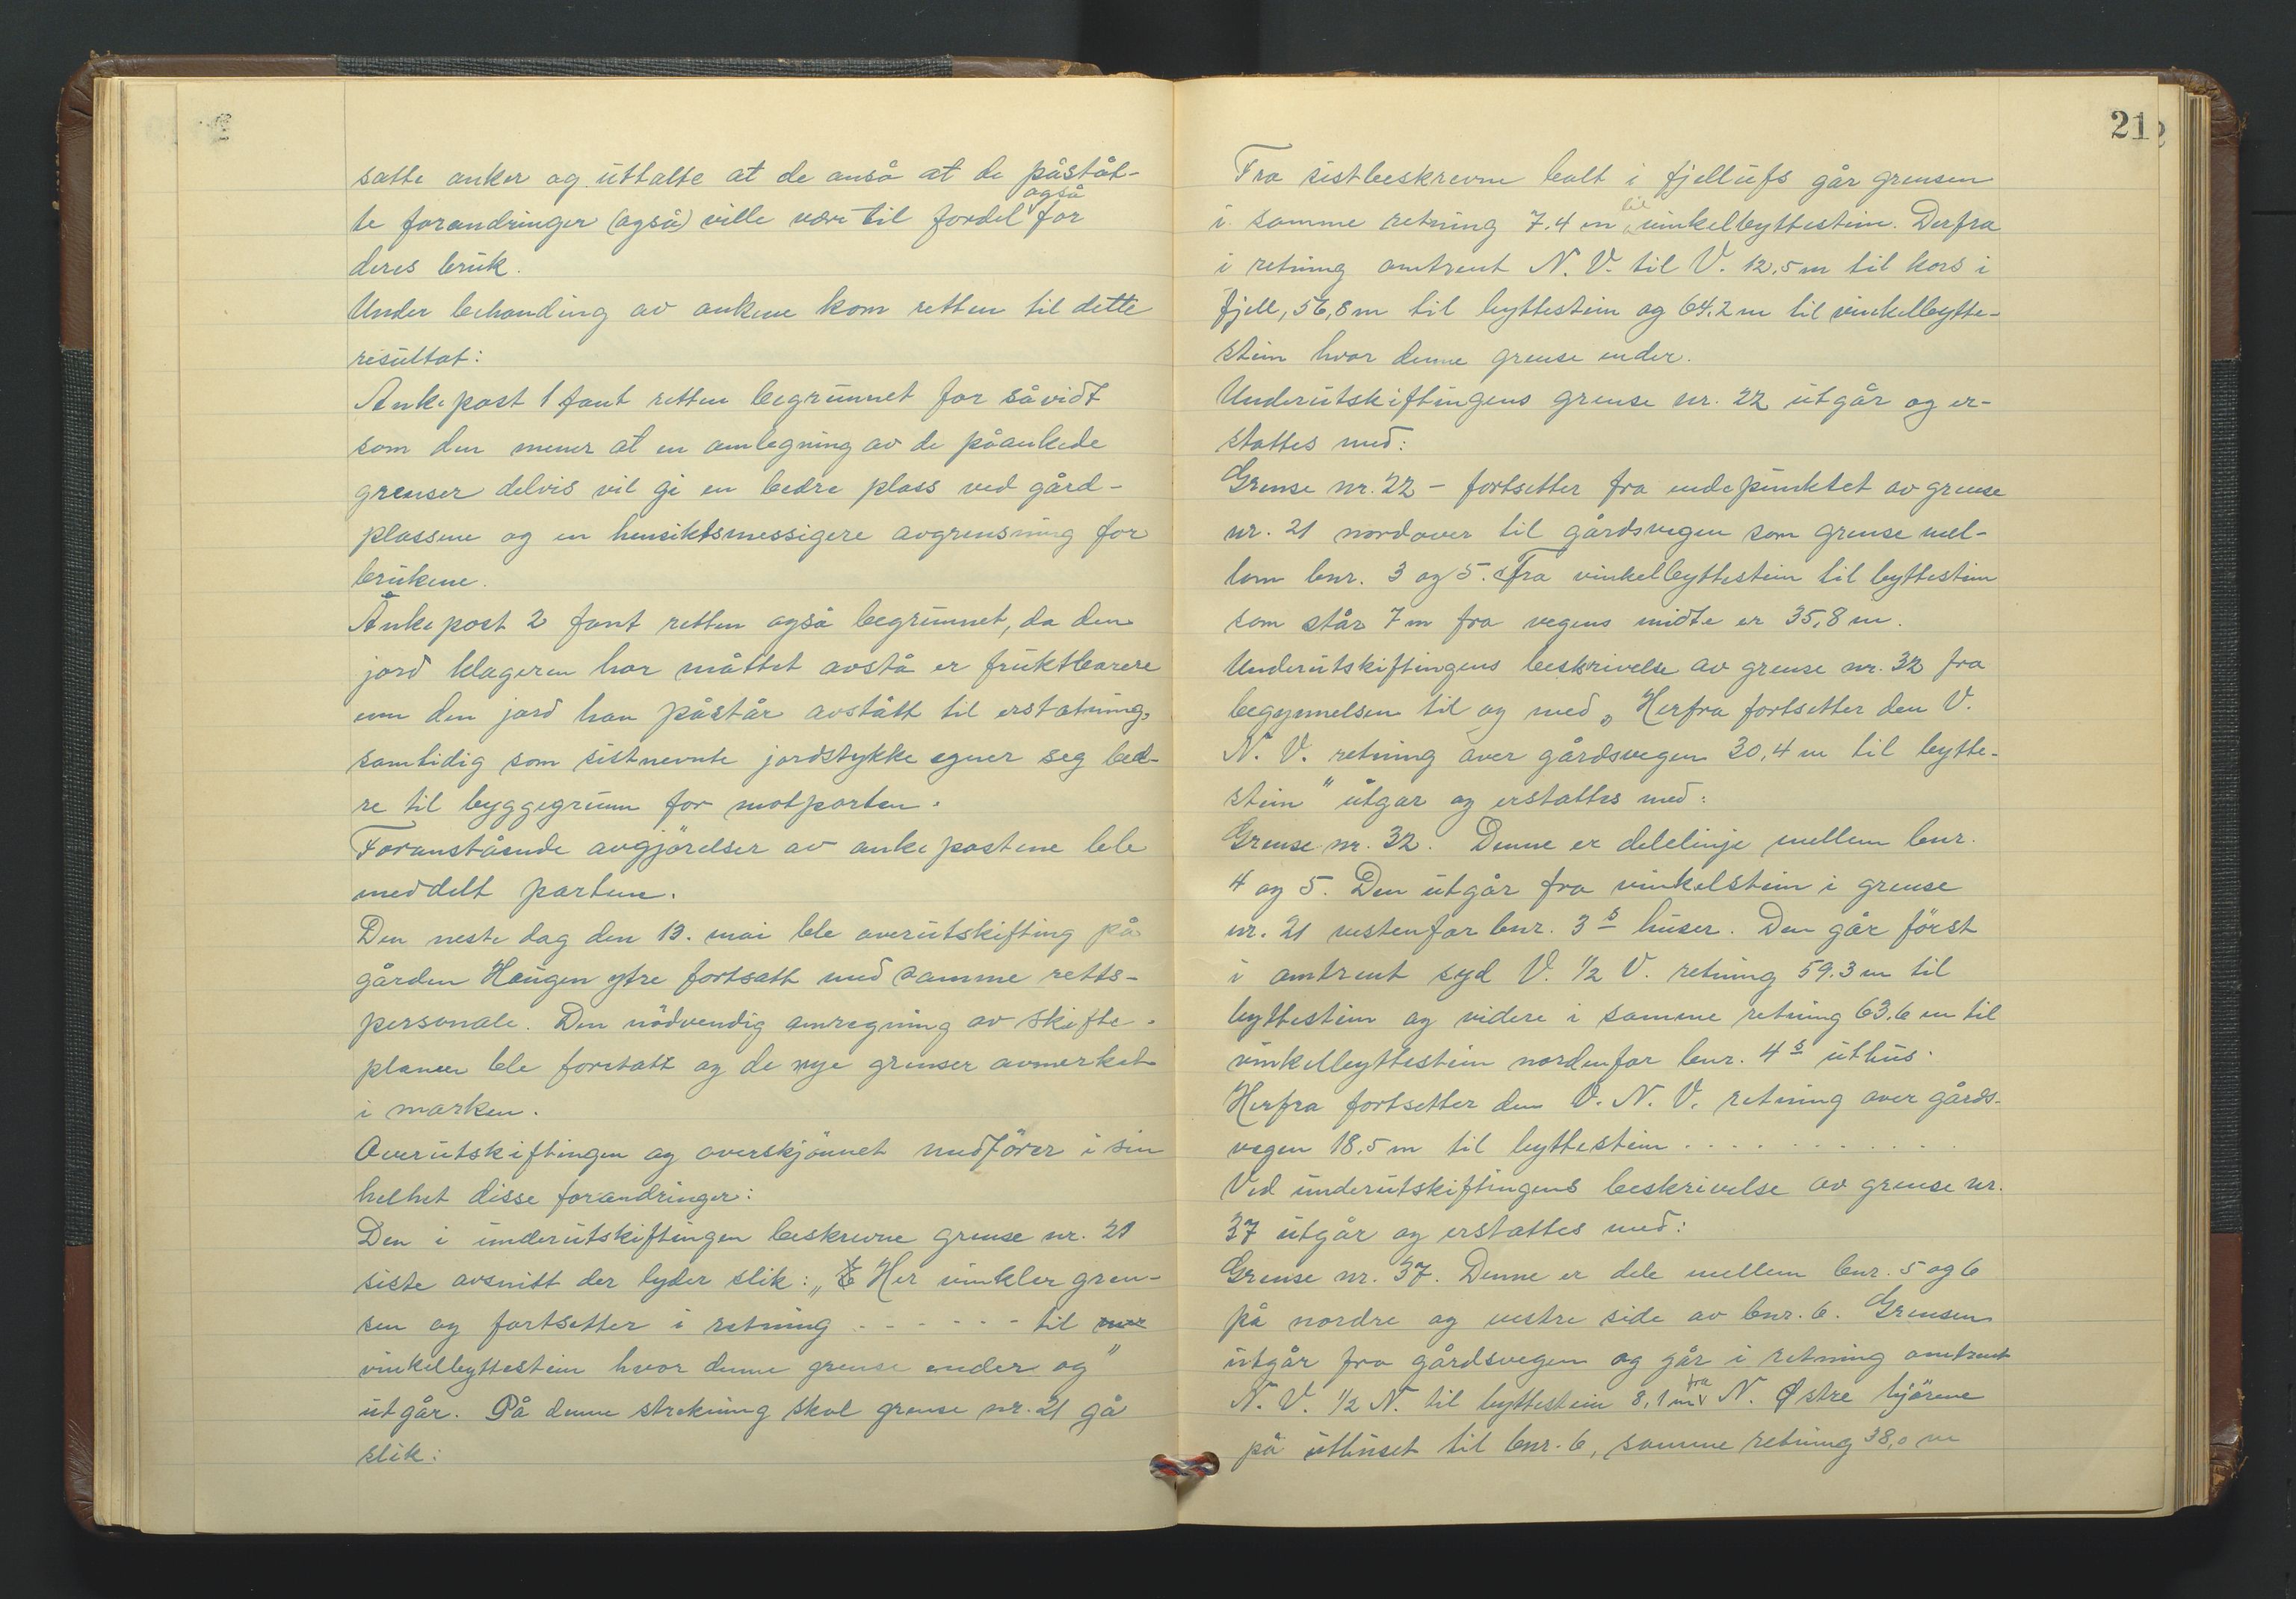 satte anker og uttalte at de anså at de påståt-
te forandringer (også) ville være til fordel også for
deres bruk.
Under behandling av ankene kom retten til dette
resultat:
Ankepost 1 fant retten begrunnet for såvidt
som den mener at en omlegning av de påankede
grenser delvis vil gi en bedre plass ved gård-
plassene og en hensiktsmessigere avgrensning for
brukene.
Ankepost 2 fant retten også begrunnet, da den
jord klageren har måttet avstå er fruktbarere
enn den jord han påstår avstått til erstatning,
samtidig som sistnevnte jordstykke egner seg bed-
re til byggegrunn for motparten.
Foranstående avgjörelser av ankepostene ble
meddelt partene.
Den neste dag den 13. mai ble overutskifting på
gården Haugen ytre fortsatt med samme retts-
personale. Den nödvendig omregning av skifte-
planen ble foretatt og de nye grenser avmerket
i marken.
Overutskiftingen og overskjönnet medförer i sin
helhet disse forandringer:
Den i underutskiftingen beskrevne grense nr. 21
siste avsnitt der lyder slik: „Her vinkler gren-
sen og fortsetter i retning - - - - - - til
vinkelbyttestein hvor denne grense ender og"
utgår. På denne strekning skal grense nr. 21 gå
slik:
21
Fra sistbeskrevne bolt i fjellufs går grensen
i samme retning 7.4 m til vinkelbyttestein. Derfra
i retning omtrent N. V. til V. 12,5 m til kors i
fjell, 56,8 m til byttestein og 64.2 m til vinkelbytte-
stein hvor denne grense ender.
Underutskiftingens grense nr. 22 utgår og er-
stattes med:
Grense nr. 22 - fortsetter fra endepunktet av grense
nr. 21 nordover til gårdsvegen som grense mel-
lom bnr. 3 og 5. Fra vinkelbyttestein til byttestein
som står 7 m fra vegens midte er 35,8 m.
Underutskiftingens beskrivelse av grense nr. 32 fra
begynnelsen til og med „Herfra fortsetter den V.
N. V. retning over gårdsvegen 30,4 m til bytte-
stein" utgår og erstattes med:
Grense nr. 32. Denne er delelinje mellem bnr.
4 og 5. Den utgår fra vinkelstein i grense
nr. 21 vestenfor bnr. 3s huser. Den går först
i omtrent syd V. 1/2 V. retning 59.3 m til
byttestein og videre i samme retning 63.6 m til
vinkelbyttestein nordenfor bnr. 4s uthus.
Herfra fortsetter den V. N. V. retning over gårds-
vegen 18.5 m til byttestein . . . . . . . . . .
Ved underutskiftingens beskrivelse av grense nr.
37 utgår og erstattes med:
Grense nr. 37. Denne er dele mellem bnr. 5 og 6
på nordre og vestre side av bnr. 6. Grensen
utgår fra gårdsvegen og går i retning omtrent
N. V. 1/2 N. til byttestein 8,1 m fra N. Østre hjörne
på uthuset til bnr. 6, samme retning 38,0 m